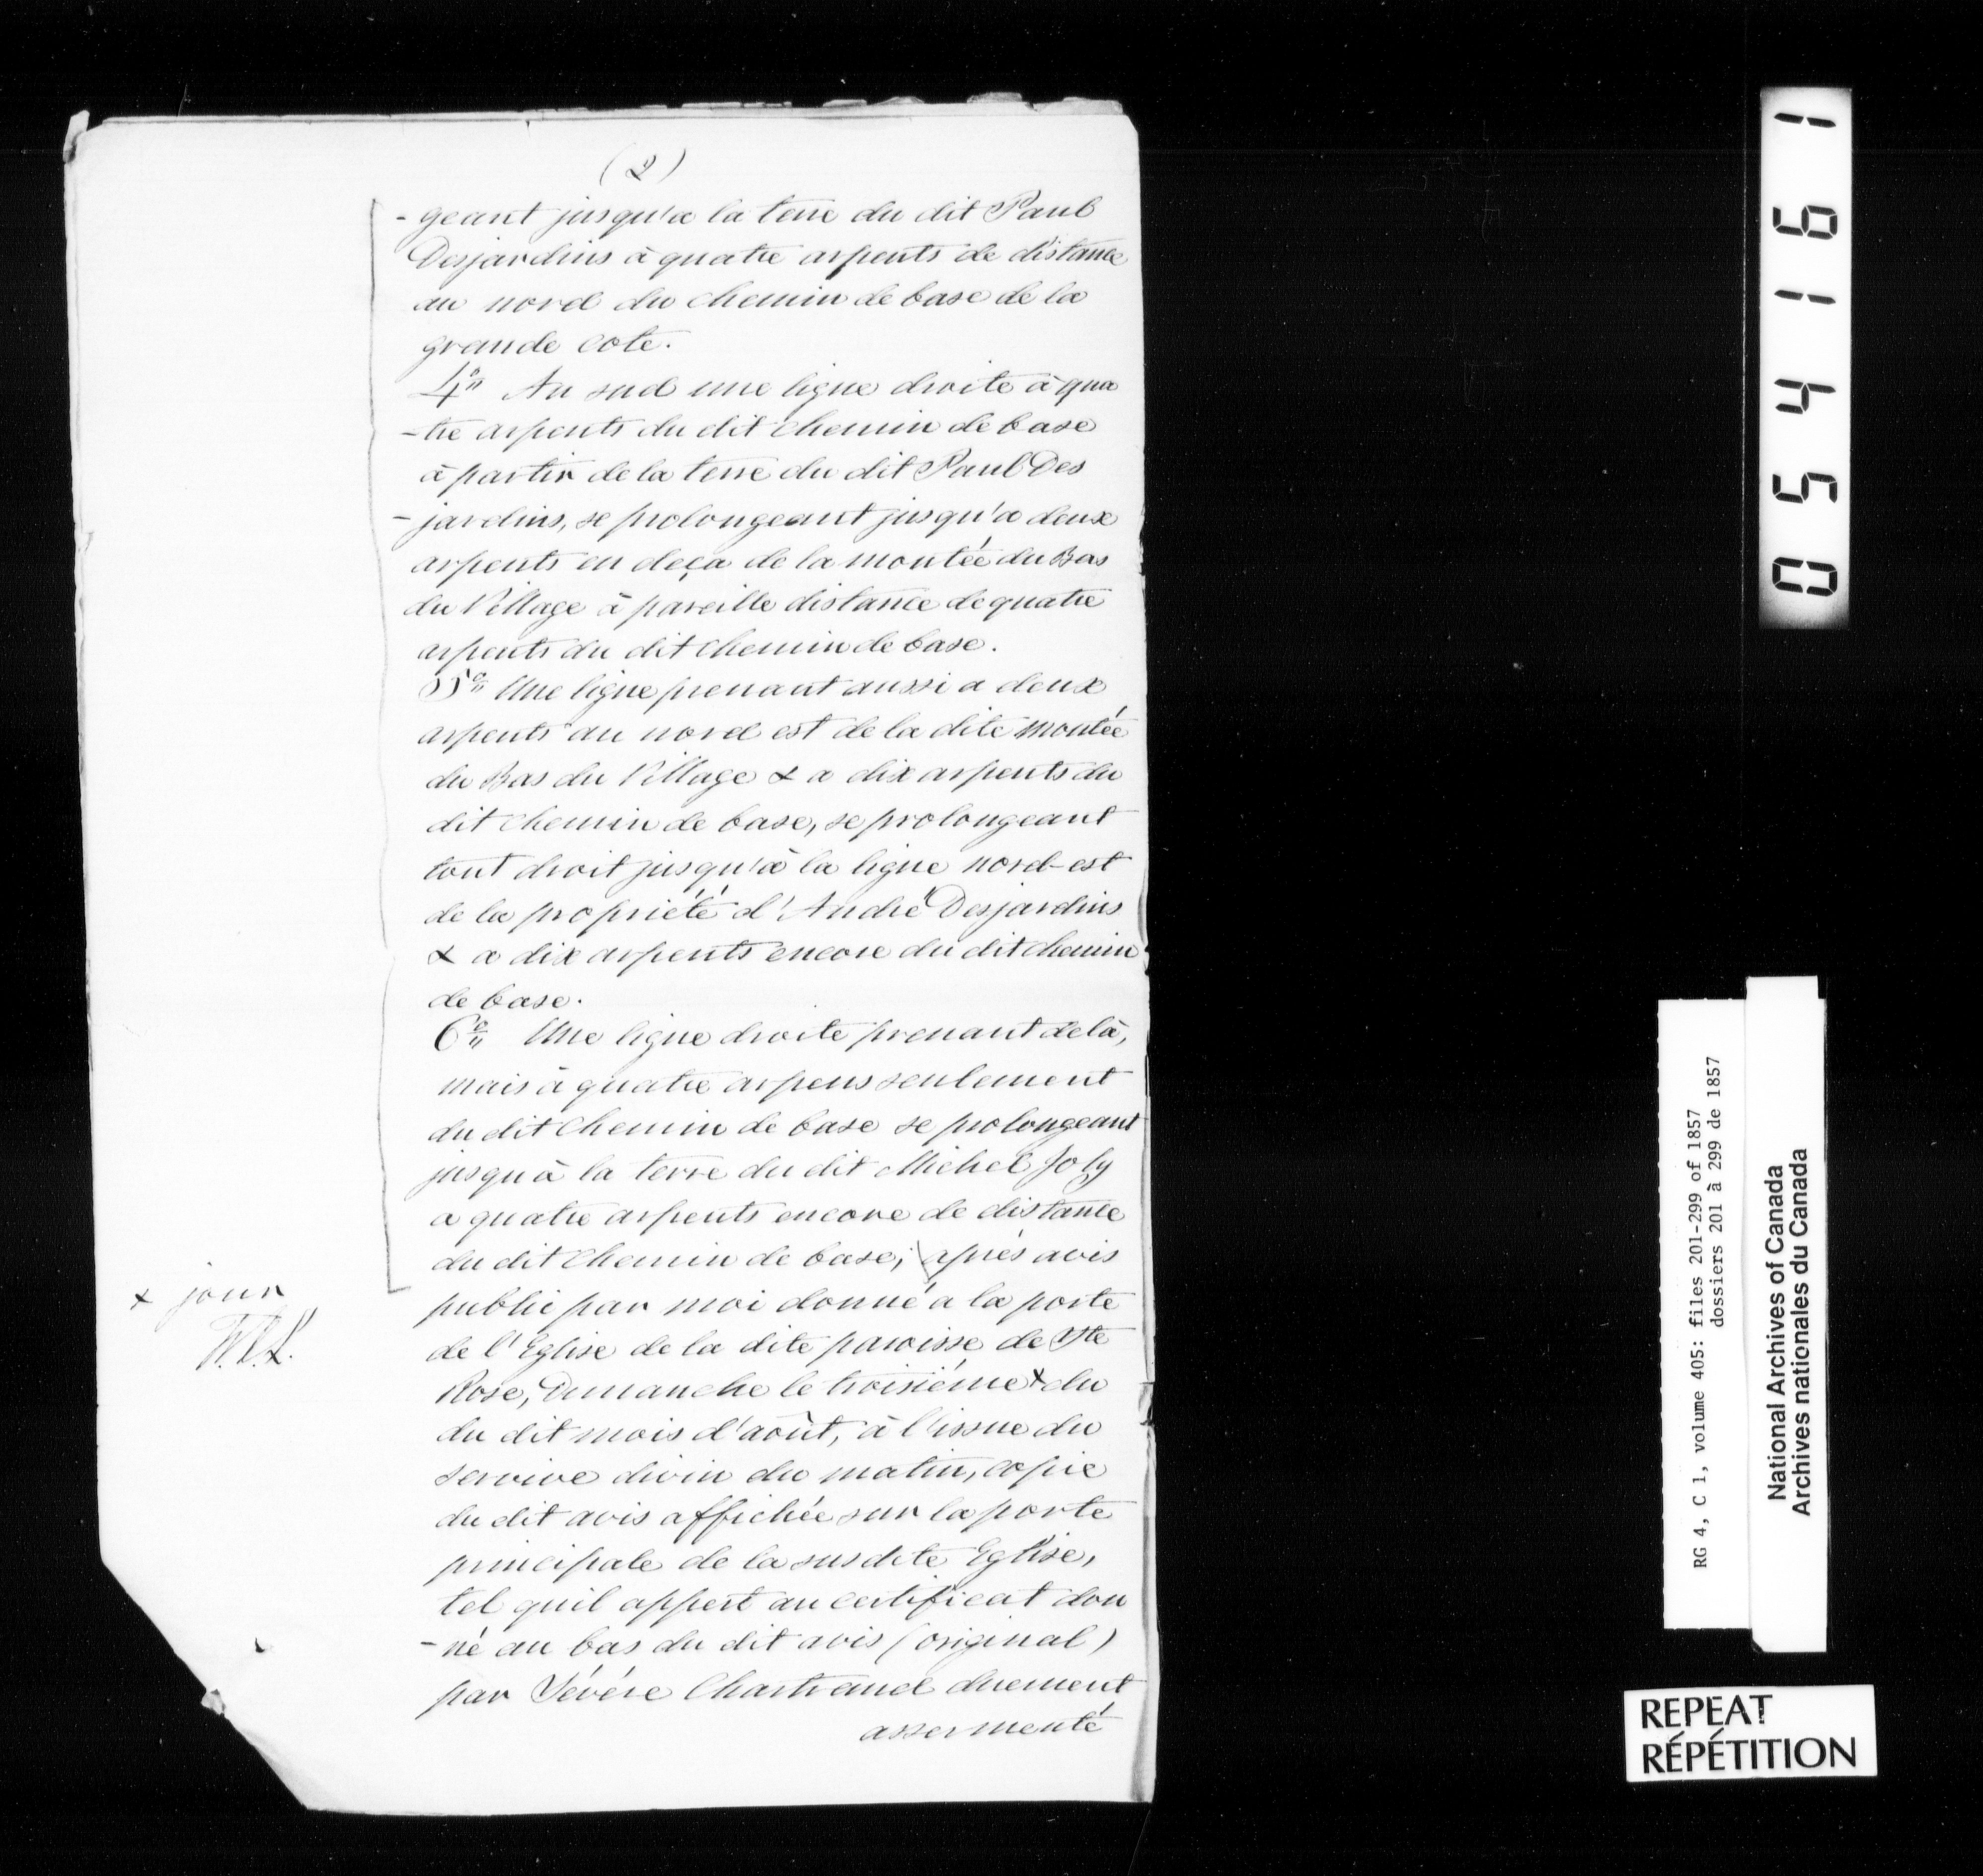 (2)
-geant jusqu'a la terre du dit Paul
Desjardins à quatre arpents de distance
au nord du chemin de base de la
grande cote.
4o" Au sud une ligne droite à qua
-tre arpents du dit chemin de base
à partir de la terre du dit Paul Des
-jardins, se prolongeant jusqu'a deux
arpents en deça de la montée du Bas
du Village à pareille distance de quatre
arpents du dit chemin de base.
5o" Une ligne prenant aussi a deux
arpents au nord est de la dite montée
du Bas du Village & a dix arpents du
dit chemin de base, se prolongeant
tout droit jusqu'à la ligne nord-est
de la propriété d'André Desjardins
& a dix arpents encore du dit chemin
de base.
6o" Une ligne droite prenant delà,
mais à quatre arpens seulement
du dit chemin de base se prolongeant
jusqu à la terre du dit Michel Joly
a quatre arpents encore de distance
du dit chemin de base; après avis
public par moi donné a la porte
de l'Eglise de la dite paroisse de Ste
Rose, Dimanche le troisième x du
du dit mois d'août, à l'issue du
service divin du matin, copie
du dit avis affichée sur la porte
principale de la susdite Eglise,
tel quil appert au certificat don
-né au bas du dit avis (original)
par Sévére Chartrand duement
assermenté
x jour
054161
RG 4, C 1, volume 405: files 201-299 of 1857
dossiers 201 à 299 de 1857
National Archives of Canada
Archives nationales du Canada
REPEAT
RÉPÉTITION